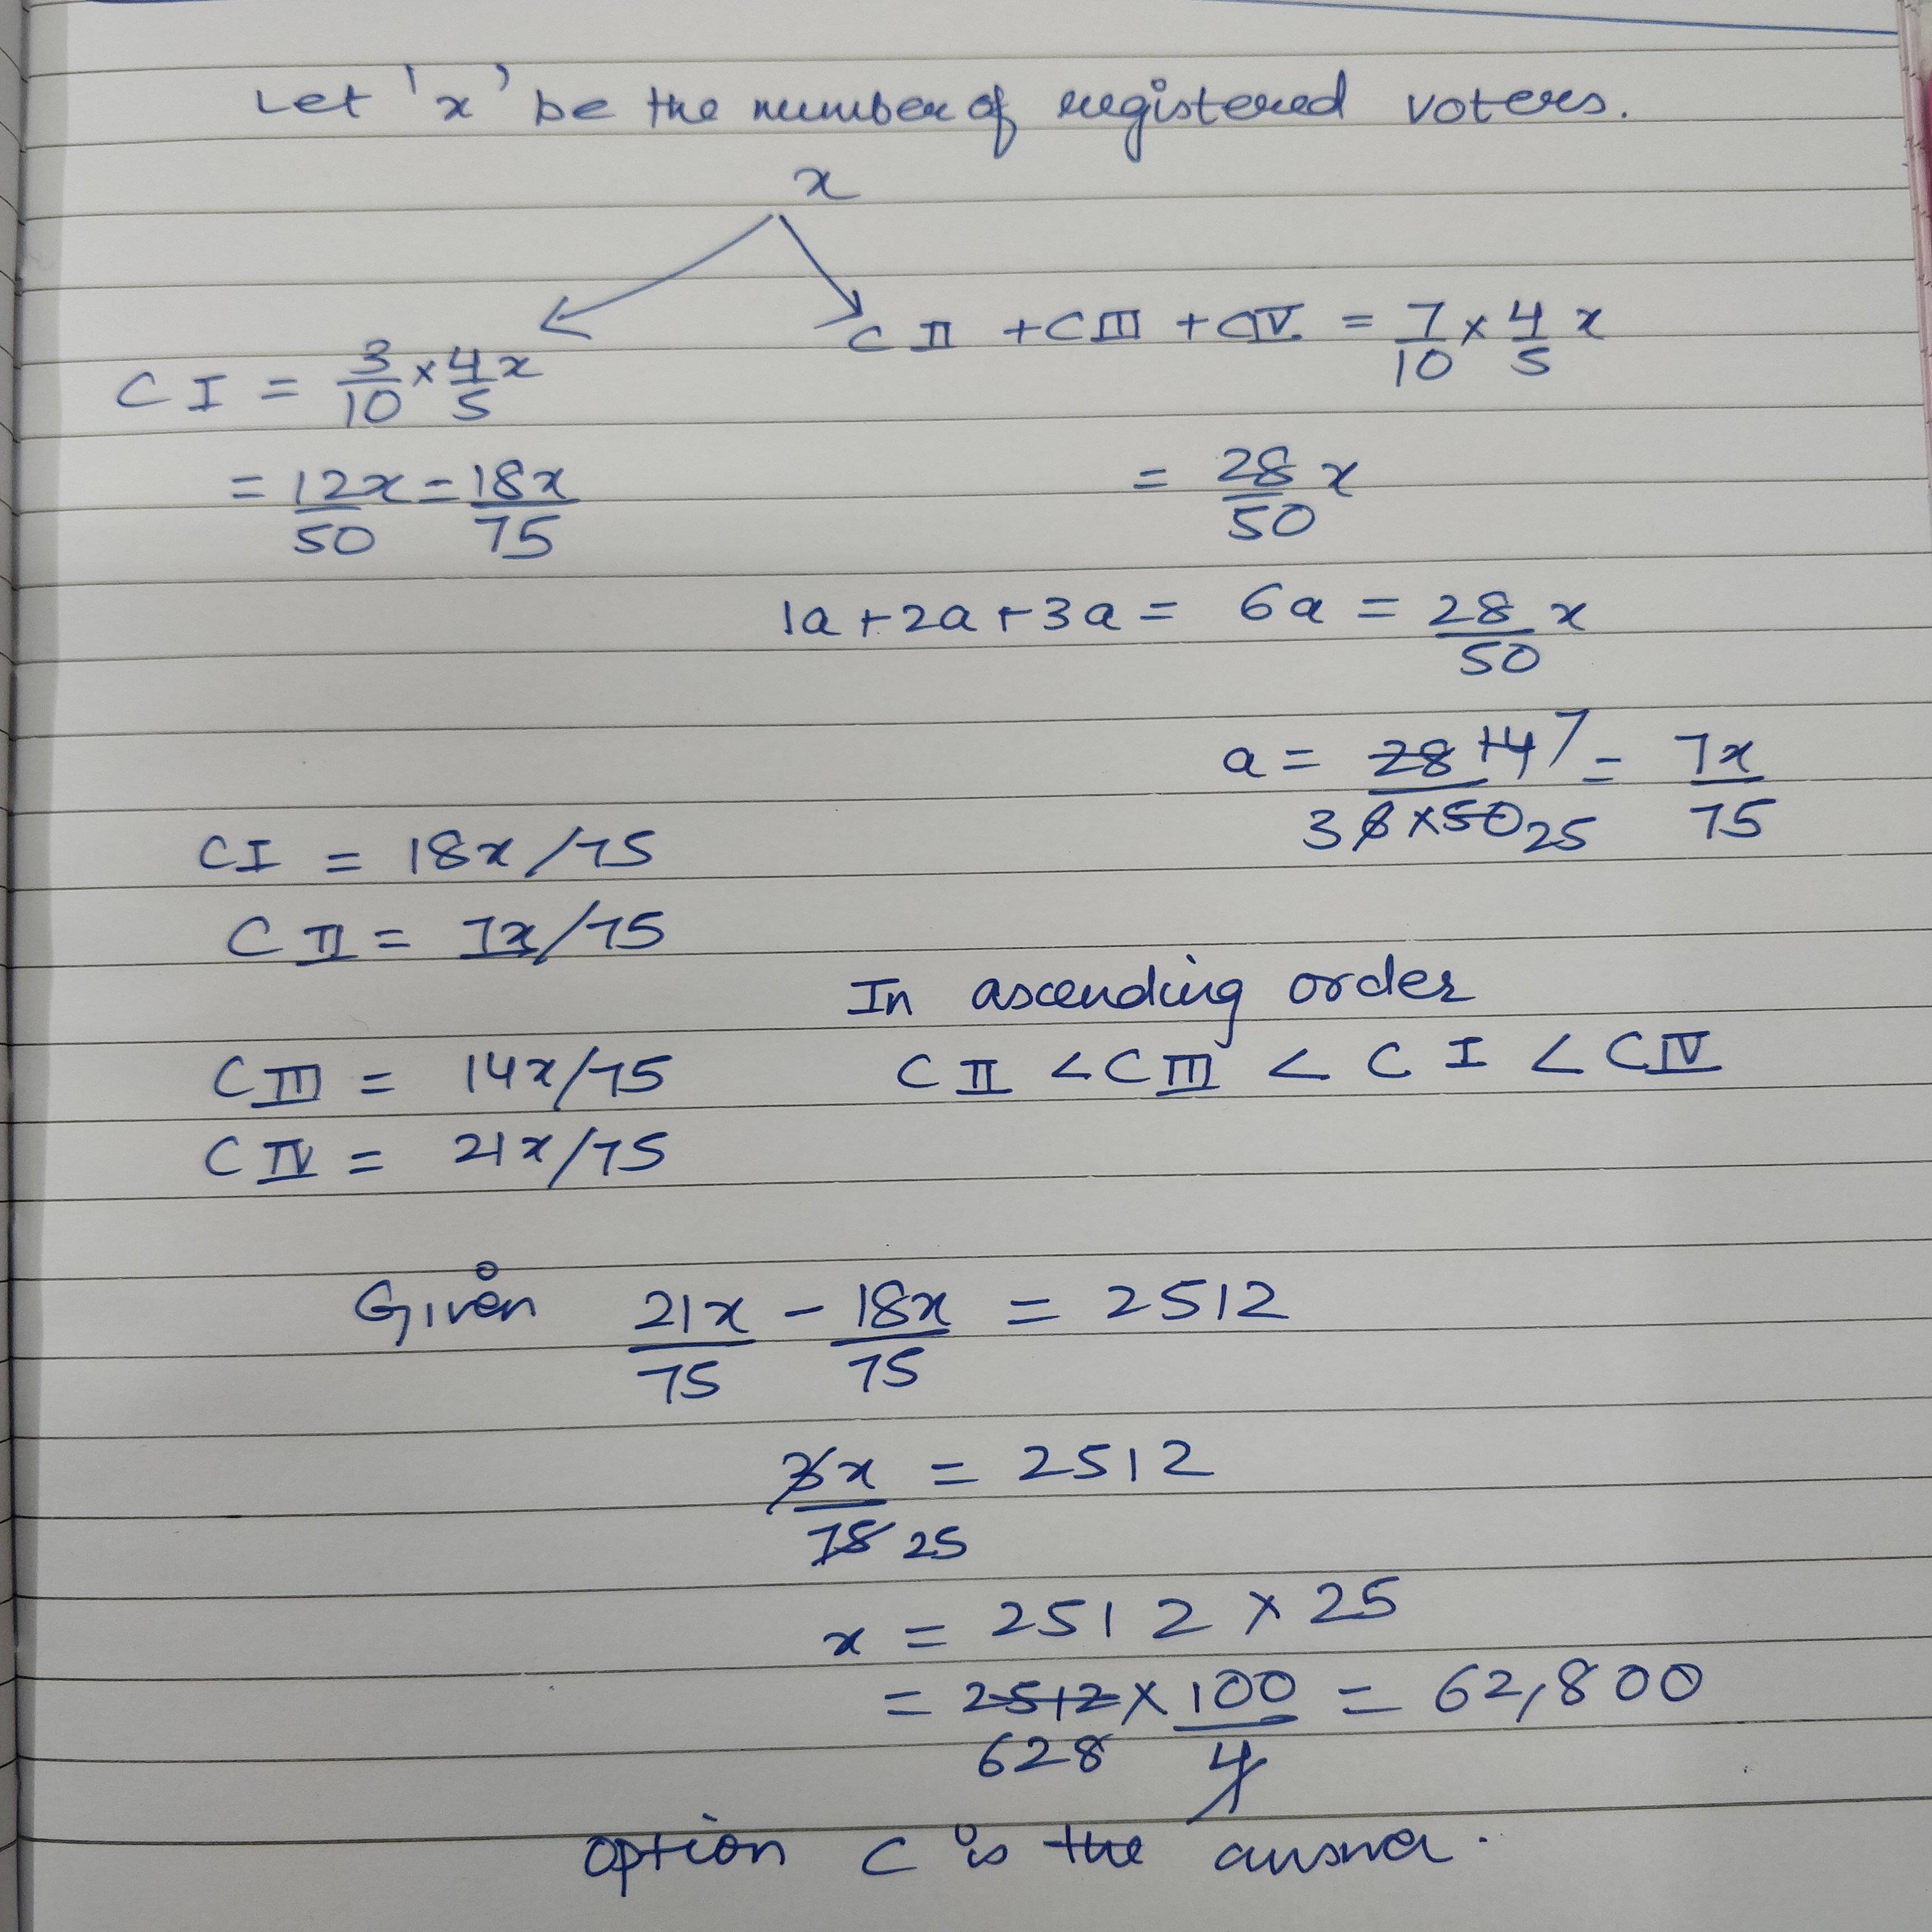 Let 'x' be the number of registered voters.
x
C II + C III + C IV = 7/10 × 4/5 x
C I = 3/10 × 4/5 x
= 12x/50 = 18x/75
= 28/50 x
1a + 2a + 3a = 6a = 28/50 x
a = 28 14 7 / 3 6 × 50 25 = 7x/75
C I = 18x/75
C II = 7x/75
In ascending order
C III = 14x/75
C II < C III < C I < C IV
C IV = 21x/75
Given 21x/75 - 18x/75 = 2512
3x/75 25 = 2512
x = 2512 × 25
= 2512 × 100/4 = 62,800
628
option C is the answer.